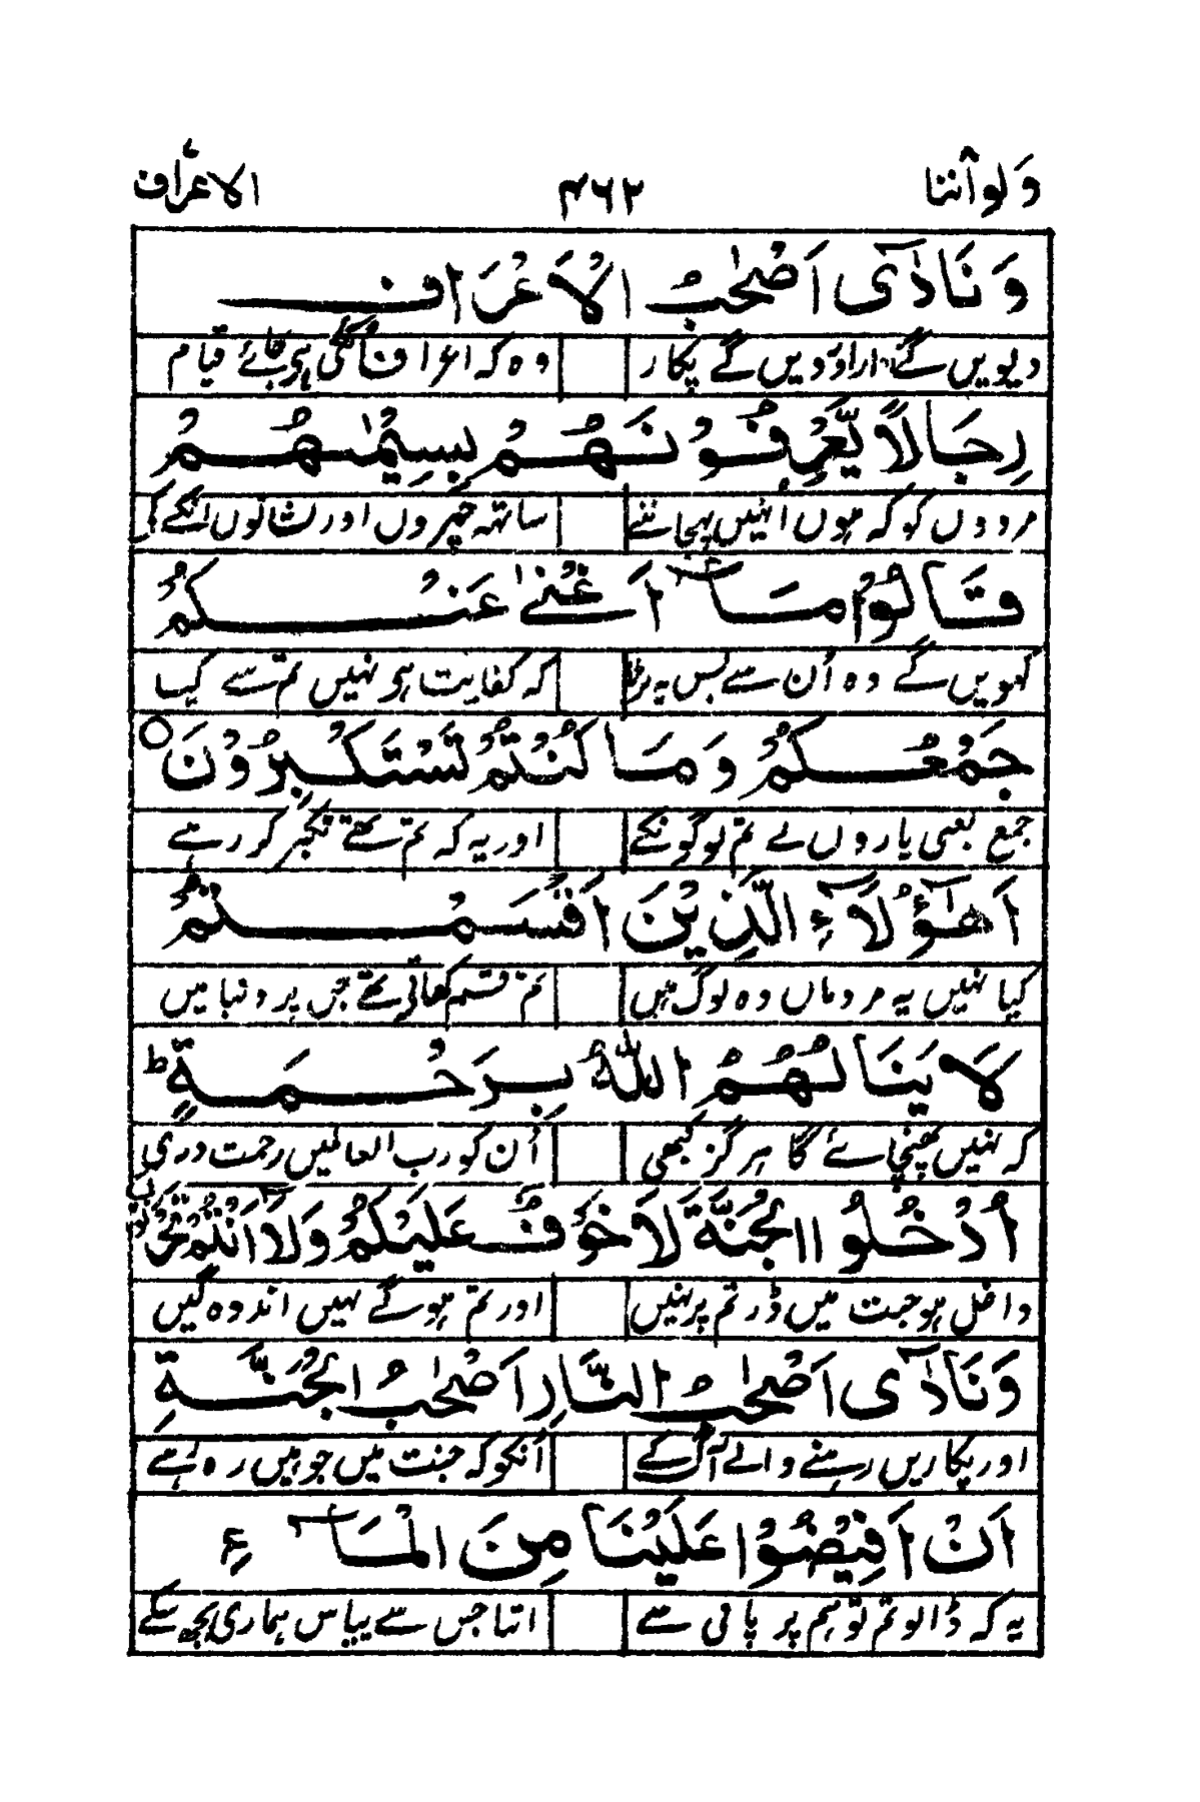 ولواننا ۴۶۲ الاعراف
وَنَادٰۤى اَصْحٰبُ الْاَعْرَافِ
دیویں گے اراوَر دیں گے پکار وہ کہ اعراف قیام
رِجَالًا يَّعْرِفُوْنَهُمْ بِسِيْمٰىهُمْ
مردوں کو کہ ہوں انہیں پہچانتے ساتھ چہروں اور نشانوں انکے کے
قَالُوْا مَاۤ اَغْنٰى عَنْكُمْ
کہویں گے وہ اُن سے بس یہ کہ کفایت ہی نہیں تم سے کیا
جَمْعُكُمْ وَمَا كُنْتُمْ تَسْتَكْبِرُوْنَ ○
جمع یعنی یاروں نے تم لوگونکے اور یہ کہ تم تھے تکبر کر رہے
اَهٰۤؤُلَاۤءِ الَّذِيْنَ اَقْسَمْتُمْ
کیا نہیں یہ مردماں وہ لوگ ہیں تم قسم کھاتے تھے جس پر دنیا میں
لَا يَنَالُهُمُ اللّٰهُ بِرَحْمَةٍ ؕ
کہ نہیں پہنچائے گا ہرگز کبھی اُن کو رب العالمیں رحمت ذری
اُدْخُلُوا الْجَنَّةَ لَا خَوْفٌ عَلَيْكُمْ وَلَاۤ اَنْتُمْ تَحْزَنُوْنَ
داخل ہو جنت میں ڈر تم پر نہیں اور تم ہوگے نہیں اندوہ گیں
وَنَادٰۤى اَصْحٰبُ النَّارِ اَصْحٰبَ الْجَنَّةِ
اور پکاریں رہنے والے آگ کے اُنکو کہ جنت میں جو ہیں رہ رہے
اَنْ اَفِيْضُوْا عَلَيْنَا مِنَ الْمَاۤءِ
یہ کہ ڈالو تم تو ہم پر پانی سے اتنا جس سے پیاس ہماری بجھ سکے